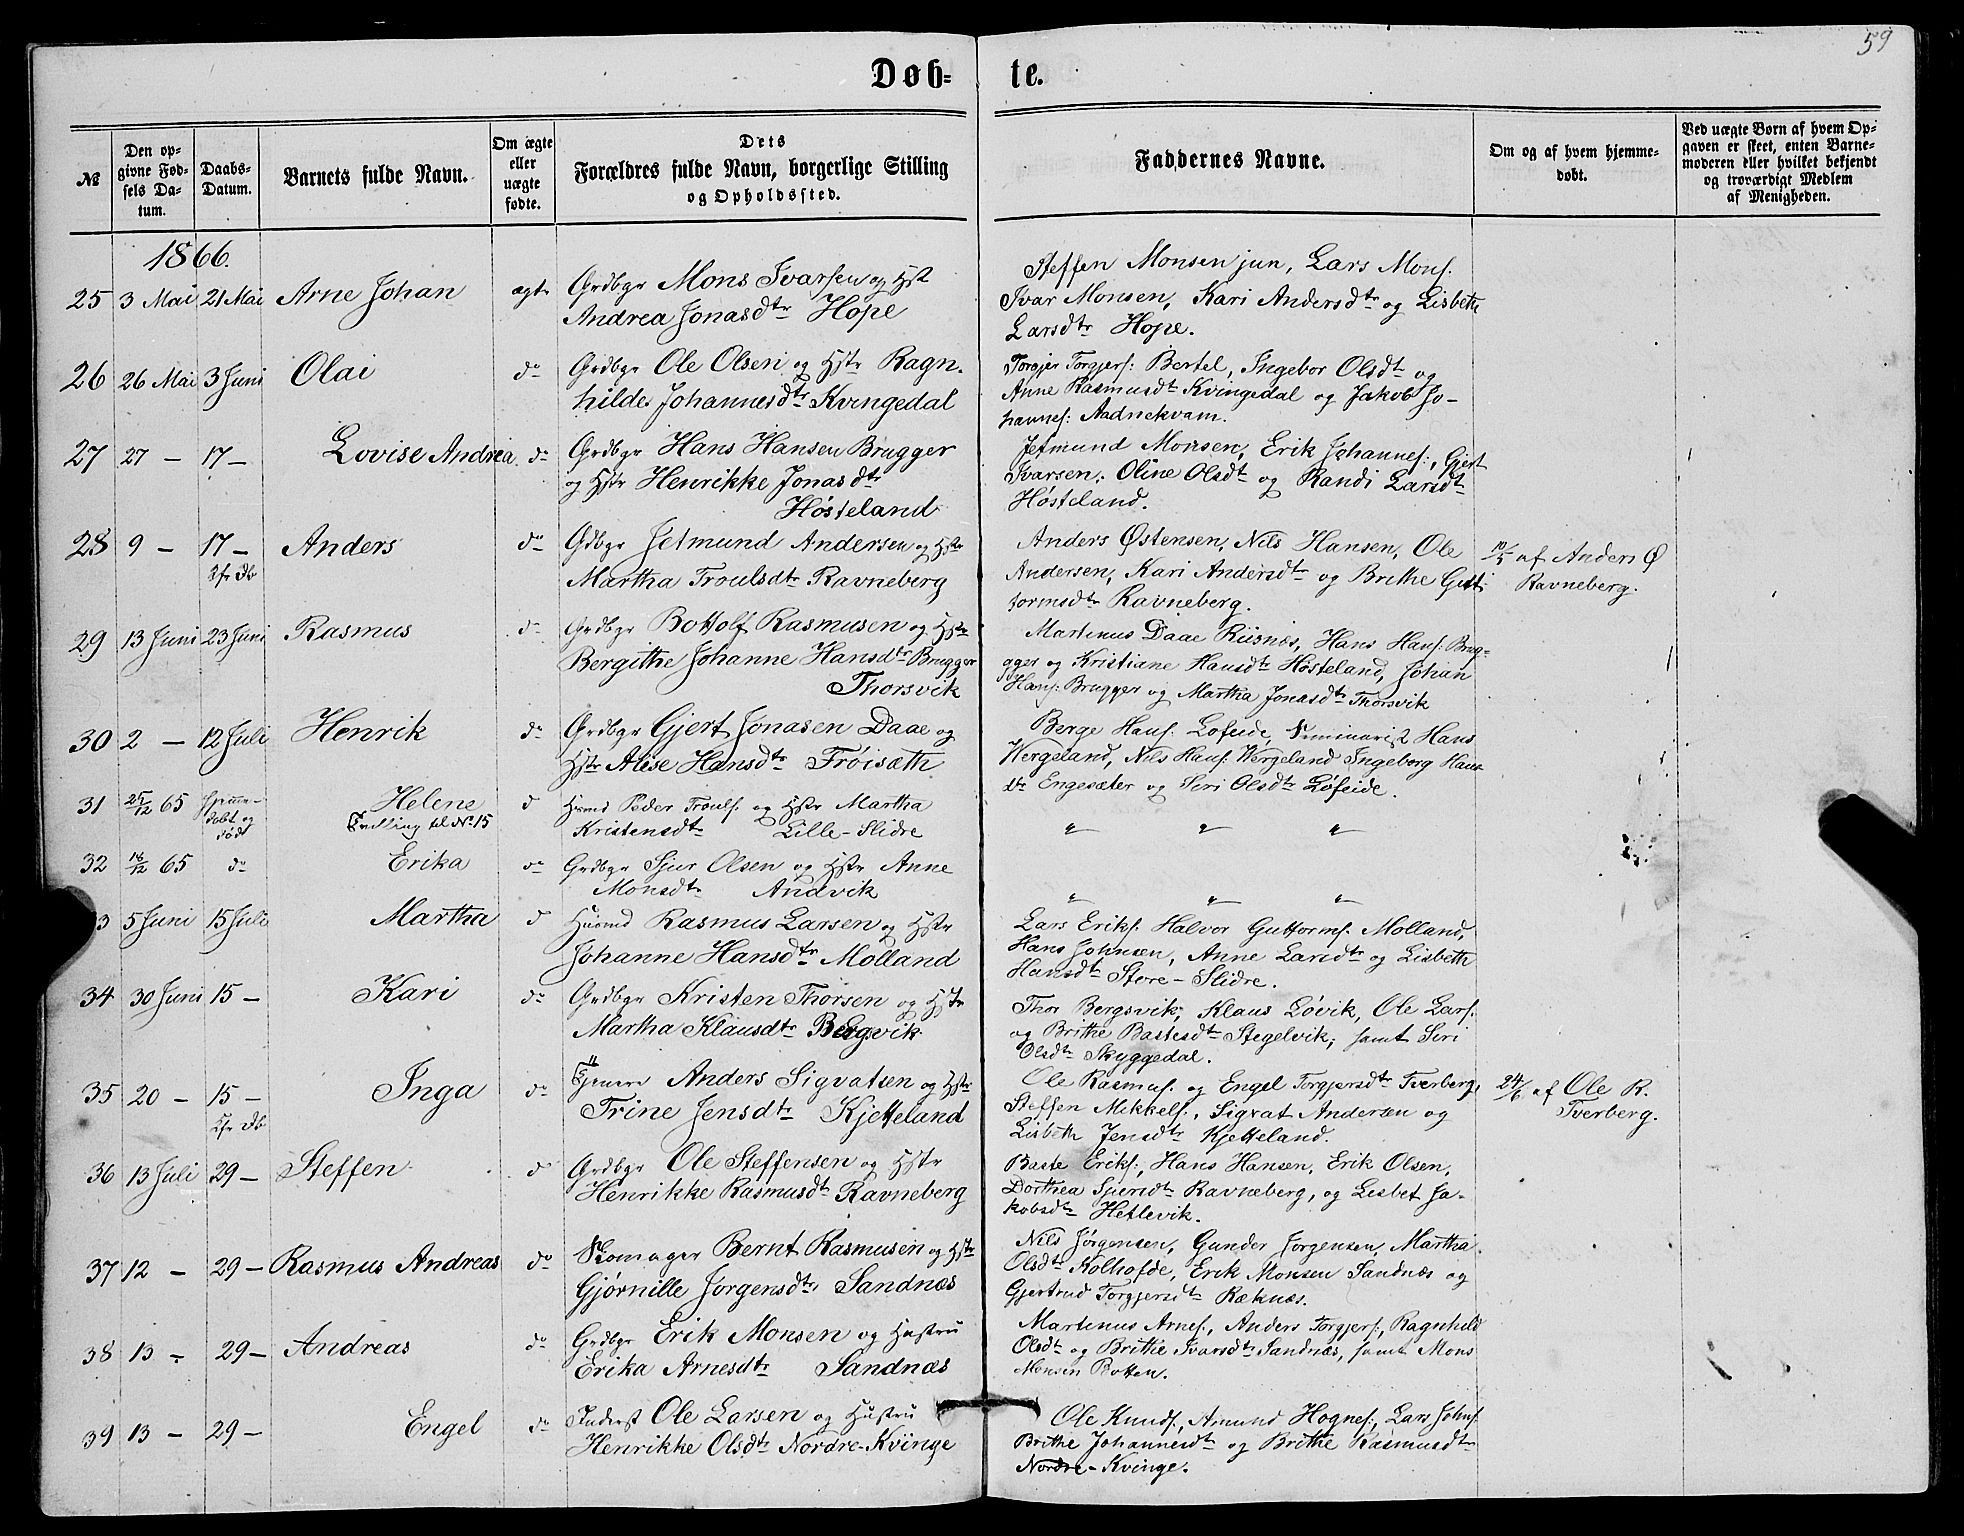 59
Døb- te.
№
Den op-
givne Fød-
sels Da-
tum.
Daabs-
Datum.
Barnets fulde Navn.
Om ægte
eller
uægte
fødte.
Dets
Forældres fulde Navn, borgerlige Stilling
og Opholdssted.
Faddernes Navne.
Om og af hvem hjemme-
døbt.
Ved uægte Børn af hvem Op-
gaven er skeet, enten Barne-
moderen eller hvilket bekjendt
og troværdigt Medlem
af Menigheden.
1866.
25 3 Mai 21 Mai Arne Johan ægte Grdbgr Mons Ivarsen og Hst
Andrea Jonasdtr Hope
Steffen Monsen jun, Lars Mons.
Ivar Monsen, Kari Andersdtr og Lisbeth
Larsdtr Hope.
26 26 Mai 3 Juni Olai do Grdbgr Ole Olsen og Hstr Ragn-
hilde Johannesdtr Kvingedal
Torgjer Torgjers: Bertel, Ingebor Olsdt og
Anne Rasmusdt Kvingedal og Jakob Jo-
hannes: Aadnekvam.
27 27 - 17 - Lovise Andrea do Grdbgr Hans Hansen Brugger
og Hstr Henrikke Jonasdtr
Høsteland
Jetmund Monsen, Erik Johannes:, Gjert
Ivarsen, Oline Olsdt og Randi Larsdt
Høsteland.
28 9 - 17 - Anders do Gdbgr Jetmund Andersen og Hstr
Martha Troulsdtr Ravneberg
Anders Østensen, Nils Hansen, Ole
Andersen, Kari Andersdtr og Brithe Gutt-
tormsdtr Ravneberg.
10/5 af Anders Ø
Ravneberg.
29 13 Juni 23 Juni Rasmus do Grdbgr Bottolf Rasmusen og Hstr
Bergithe Johanne Hansdtr Brugger
Thorsvik
Martinus Daae Risnæs, Hans Hans: Brug-
ger og Kristiane Hansdt Høsteland, Johan
Hans: Brugger og Martha Jonasdtr Thorsvik
30 2 - 12 Juli Henrik do Grdbgr Gjert Jonasen Daae og
Hstr Alise Hansdtr Frøisæth
Berge Hans: Lofeide, Seminarist Hans
Wergeland, Nils Hans: Wergeland Ingeborg Hans-
dtr Engesæter og Siri Olsdtr Løfeide.
31 25/12 65 Hjemme-
døbt og
død Helene
Tvilling til No. 15 d Husmd Peder Trouls: og Hstr Martha
Kristensdtr Lille-Slidre
" " "
32 16/12 65 do Erika do Grdbgr Sjur Olsen og Hstr Anne
Monsdtr Andvik
" " "
3 5 Juni 15 Juli Martha d Husmd Rasmus Larsen og Hstr
Johanne Hansdtr Molland
Lars Eriks: Halvor Guttorms: Molland,
Hans Johnsen, Anne Larsdtr og Lisbeth
Hansdtr Store-Slidre.
34 30 Juni 15 - Kari do Grdbgr Kristen Thorsen og Hstr
Martha Klausdtr Bergsvik
Thor Bergsvik, Klaus Løvik, Ole Lars:
og Brithe Bastesdtr Stegelvik, samt Siri
Olsdtr Skyggedal.
35 20 - 15 - Inga do Anders Sigvatsen og Hstr
Trine Jensdtr Kjetteland
Ole Rasmus: og Engel Torgjersdtr Tverberg,
Steffen Mikkels:, Sigvat Andersen og
Lisbeth Jensdtr Kjetteland.
24/6 af Ole R.
Tverberg.
36 13 Juli 29 - Steffen d Grdbgr Ole Steffensen og Hstr
Henrikke Rasmusdt Ravneberg
Baste Eriks:, Hans Hansen, Erik Olsen,
Dorthea Sjursdtr Ravneberg, og Lisbet Ja-
kobsdtr Hetlevik.
37 12 - 29 - Rasmus Andreas do Skomager Bernt Rasmusen og Hstr
Gjørnille Jørgensdtr Sandnæs
Nils Jørgensen, Gunder Jørgensen, Martha
Olsdt Kolhofde, Erik Monsen Sandnæs og
Gjertrud Torgjersdtr Ræknæs.
38 13 - 29 - Andreas do Grdbgr Erik Monsen og Hustru
Erika Arnesdtr Sandnæs
Martinus Arnes:, Anders Torgjers:, Ragnhild
Olsdt og Brithe Ivarsdtr Sandnæs, samt Mons
Monsen Botten.
39 13 - 29 - Engel do Inderst Ole Larsen og Hustru
Henrikke Olsdtr Nordre-Kvinge
Ole Knuds:, Amund Hognes:, Lars Johns:
Brithe Johannesdt og Brithe Rasmusdtr
Nordre-Kvinge.